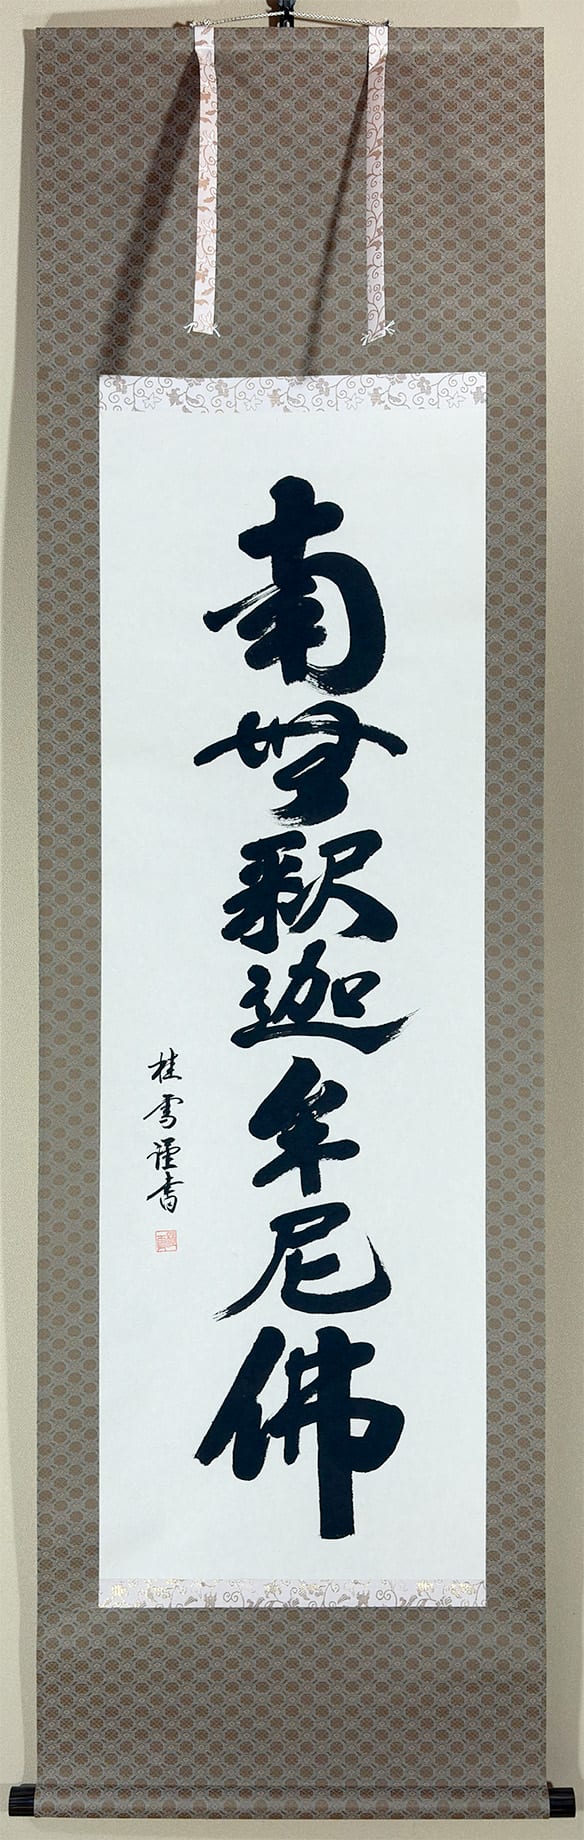 南無釈迦牟尼佛
桂雪謹書